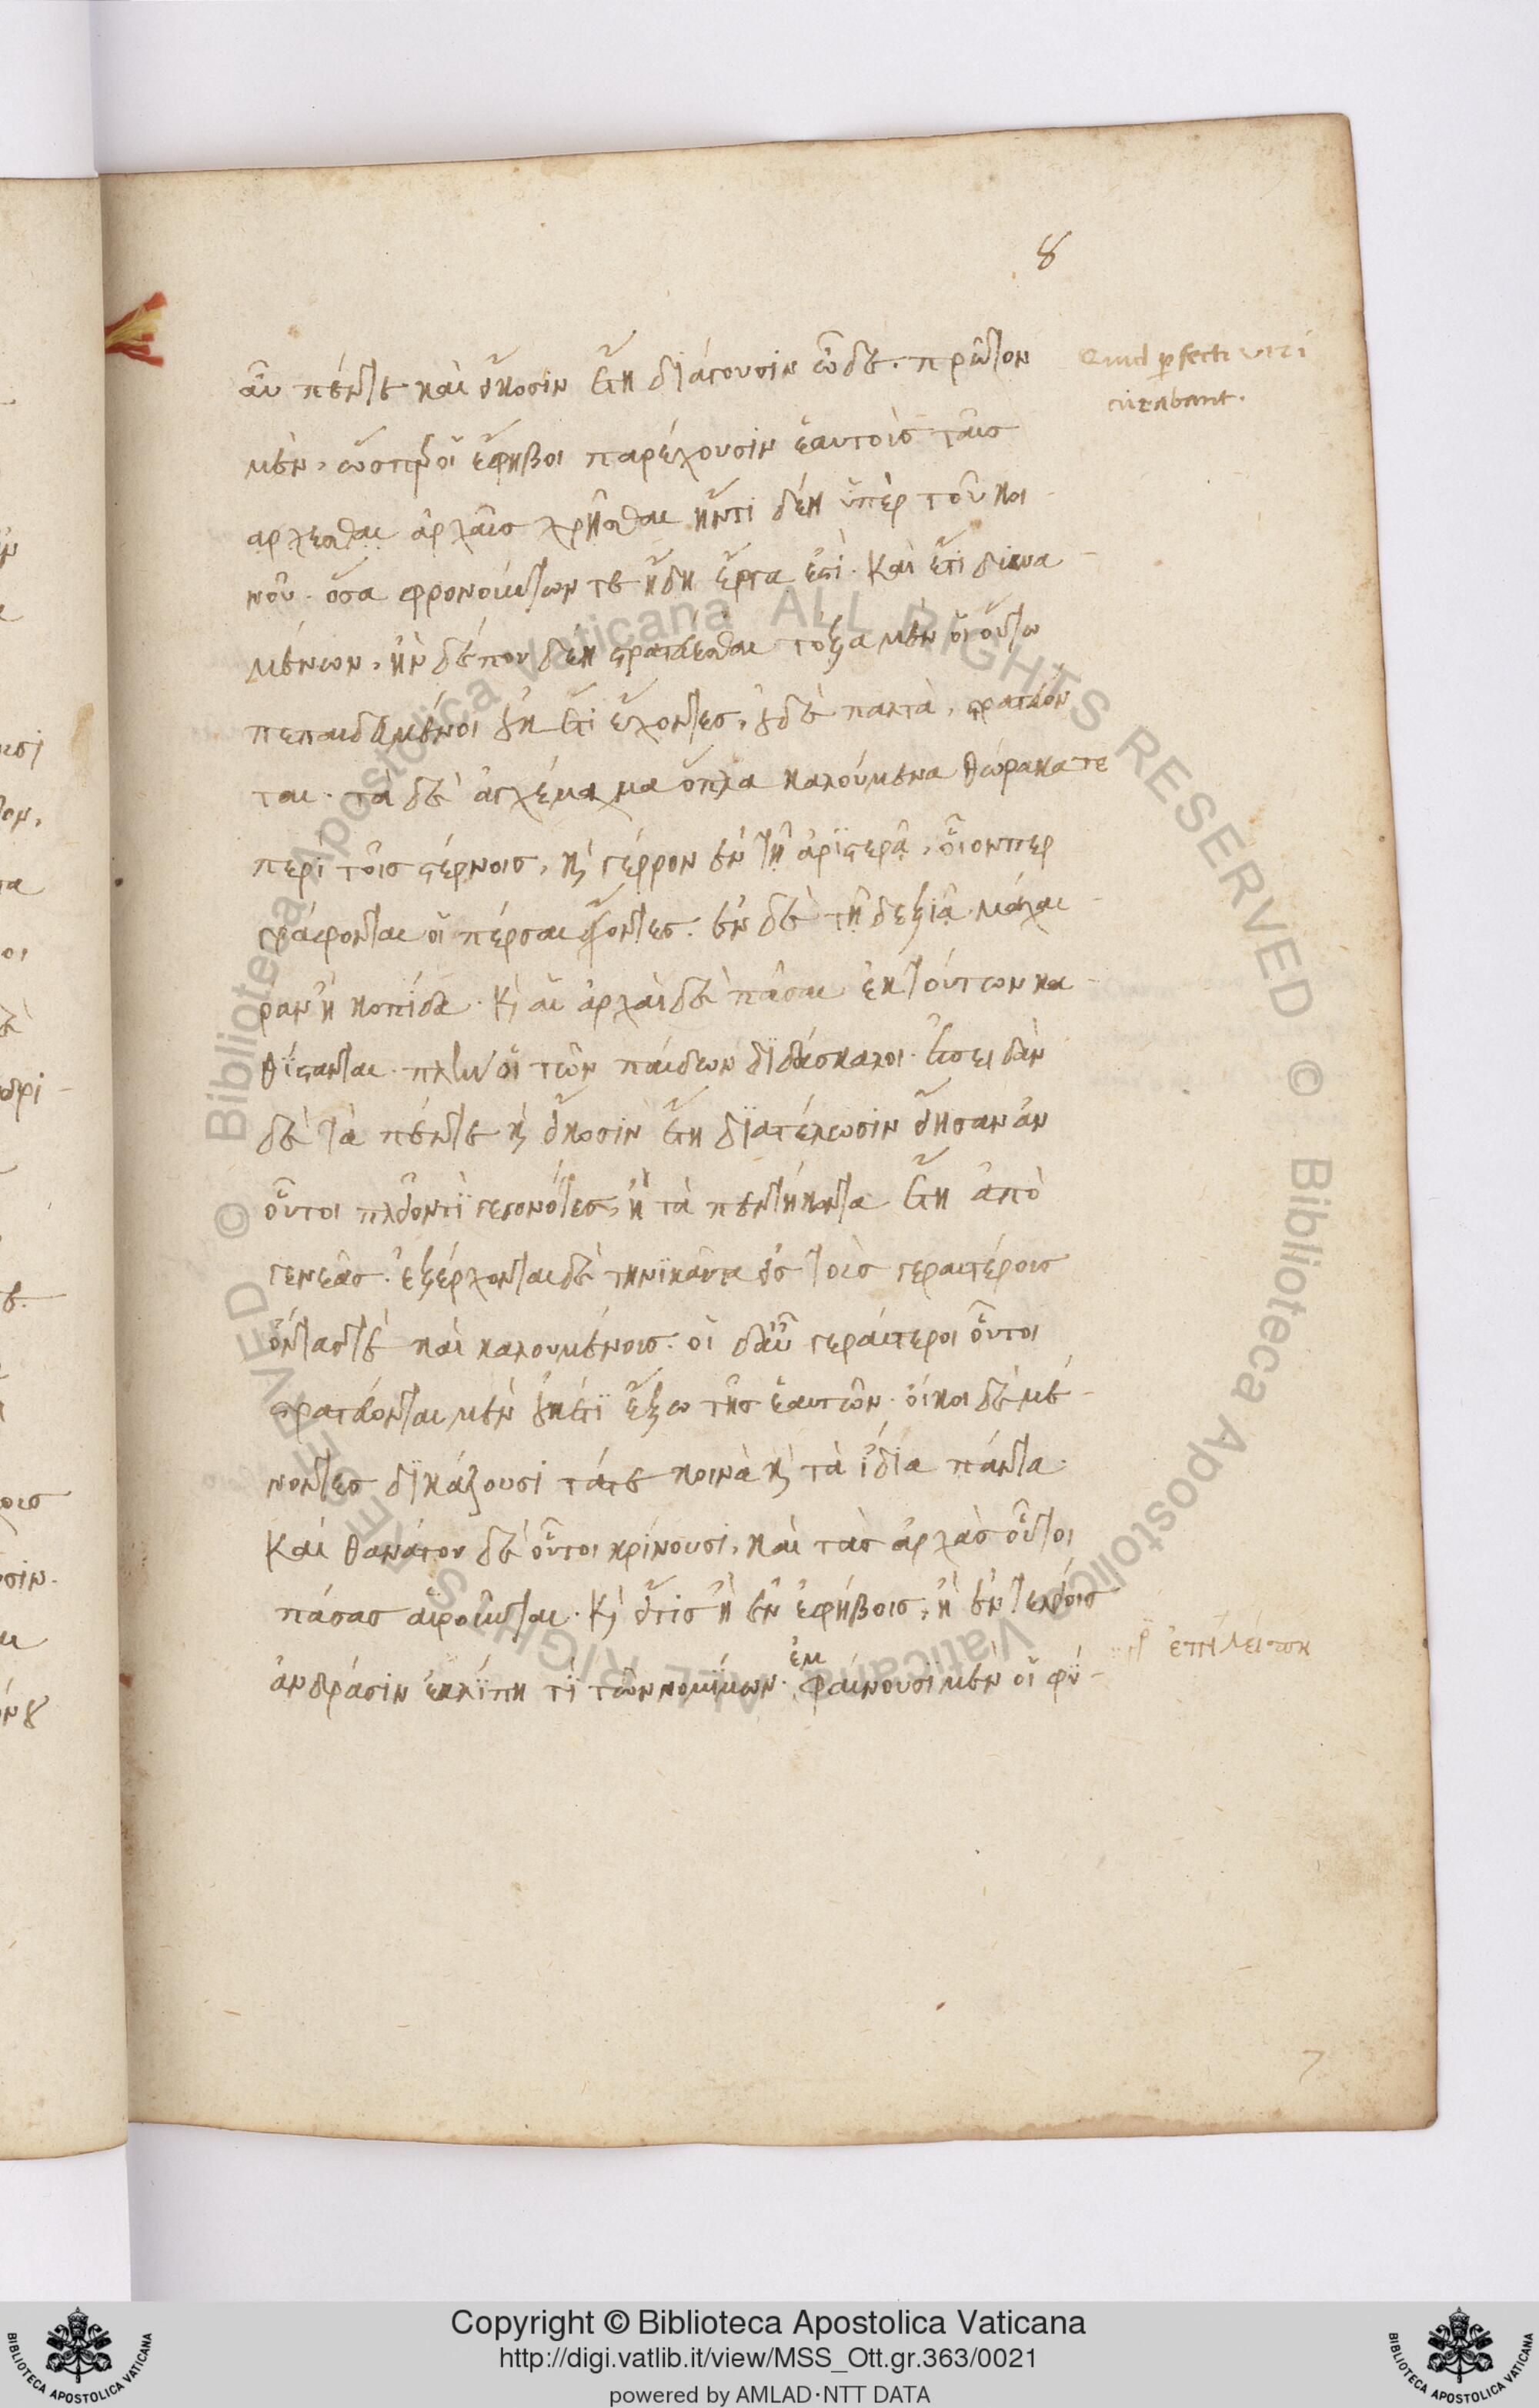 8
αὖ πέντε καὶ εἴκοσιν ἔτη διάγουσιν ὧδε. πρῶτον
μὲν, ὥσπερ οἱ ἔφηβοι παρέχουσιν ἑαυτοὺς ταῖς
ἀρχαῖς χρῆσθαι ἤν τι δέῃ ὑπὲρ τοῦ κοι-
νοῦ. ὅσα φρονούντων τε ἤδη ἔργα ἐστὶ. καὶ ἔτι δυνα-
μένων. ἢν δέ που δέῃ στρατεύεσθαι τόξα μὲν οἱ οὕτω
πεπαιδευμένοι οὐκ ἔτι ἔχοντες, οὐδὲ παλτὰ, στρατεύον
ται. τὰ δὲ ἀγχέμαχα ὅπλα καλούμενα θώρακα τε
περὶ τοῖς στέρνοις, καὶ γέρρον ἐν τῇ ἀριστερᾷ, οἷόνπερ
γράφονται οἱ πέρσαι ἔχοντες. ἐν δὲ τῇ δεξιᾷ μάχαι-
ραν ἢ κοπίδα. καὶ αἱ ἀρχαὶ δὲ πᾶσαι ἐκ τούτων κα-
θίστανται. πλὴν οἱ τῶν παίδων διδάσκαλοι. ἐπειδὰν
δὲ τὰ πέντε καὶ εἴκοσιν ἔτη διατελέσωσιν εἴησαν ἂν
οὗτοι πλεῖόν τι γεγονότες, ἢ τὰ πεντήκοντα ἔτη ἀπὸ
γενεᾶς. ἐξέρχονται δὲ τηνικαῦτα εἰς τοὺς γεραιτέρους
ὄντας τὲ καὶ καλουμένους. οἱ δ' αὖ γεραίτεροι οὗτοι
στρατεύονται μὲν οὐκέτι ἔξω τῆς ἑαυτῶν. οἴκοι δὲ μέ-
νοντες δικάζουσι τά τε κοινὰ καὶ τὰ ἴδια πάντα.
καὶ θανάτου δὲ οὗτοι κρίνουσι, καὶ τὰς ἀρχὰς οὗτοι
πάσας αἱροῦνται. καὶ ἤν τις ἢ ἐν ἐφήβοις, ἢ ἐν τελείοις
ἀνδράσιν ἐλλίπῃ τὶ τῶν νομίμων. ἐμφαίνουσι μὲν οἱ φύ-
Quid perfecti viri
curabant.
7